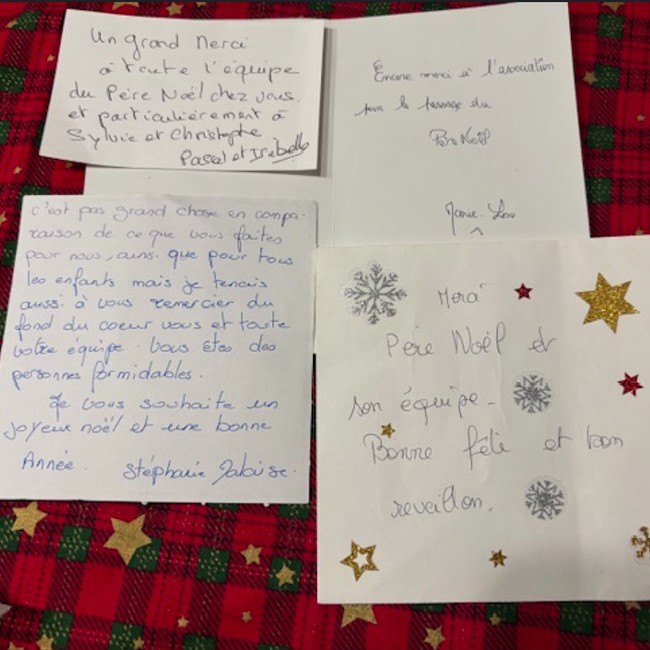 Un grand Merci
à toute l'équipe
du Père Noël chez vous.
et particulièrement à
Sylvie et Christophe
Pascal et Isabelle
Encore merci à l'association
pour le passage du
Père Noël
Marie-Lou
c'est pas grand chose en compa-
raison de ce que vous faites
pour nous, ainsi que pour tous
les enfants mais je tenais
aussi à vous remercier du
fond du coeur vous et toute
votre équipe. Vous êtes des
personnes formidables.
Je vous souhaite un
joyeux noël et une bonne
Année. Stéphanie
Merci
Père Noël et
son équipe-
Bonne fête et bon
reveillon.